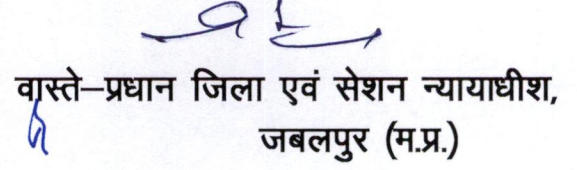 वास्ते–प्रधान जिला एवं सेशन न्यायाधीश,
जबलपुर (म.प्र.)